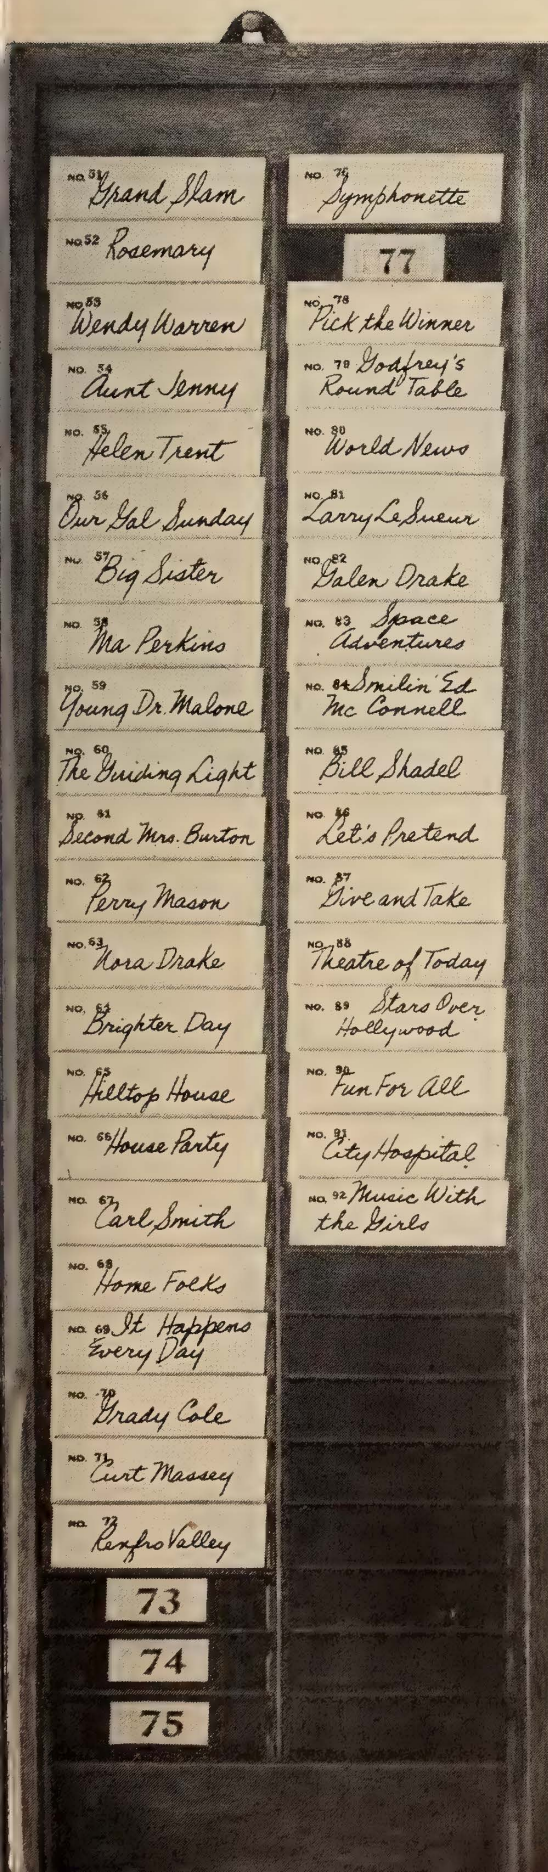 NO. 51 Grand Slam
NO. 52 Rosemary
NO. 53
Wendy Warren
NO. 54
Aunt Jenny
NO. 55
Helen Trent
NO. 56
Our Gal Sunday
NO. 57
Big Sister
NO. 58
Ma Perkins
NO. 59
Young Dr. Malone
NO. 60
The Guiding Light
NO. 61
Second Mrs. Burton
NO. 62
Perry Mason
NO. 63
Nora Drake
NO. 64
Brighter Day
NO. 65
Hilltop House
NO. 66 House Party
NO. 67
Carl Smith
NO. 68
Home Folks
NO. 69 It Happens
Every Day
NO. 70
Grady Cole
NO. 71
Curt Massey
NO. 72
Renfro Valley
73
74
75
NO. 76
Symphonette
77
NO. 78
Pick the Winner
NO. 79 Godfrey's
Round Table
NO. 80
World News
NO. 81
Larry LeSueur
NO. 82
Galen Drake
NO. 83 Space
Adventures
NO. 84 Smilin' Ed
Mc Connell
NO. 85
Bill Shadel
NO. 86
Let's Pretend
NO. 87
Give and Take
NO. 88
Theatre of Today
NO. 89 Stars Over
Hollywood
NO. 90
Fun For All
NO. 91
City Hospital
NO. 92 Music With
the Girls